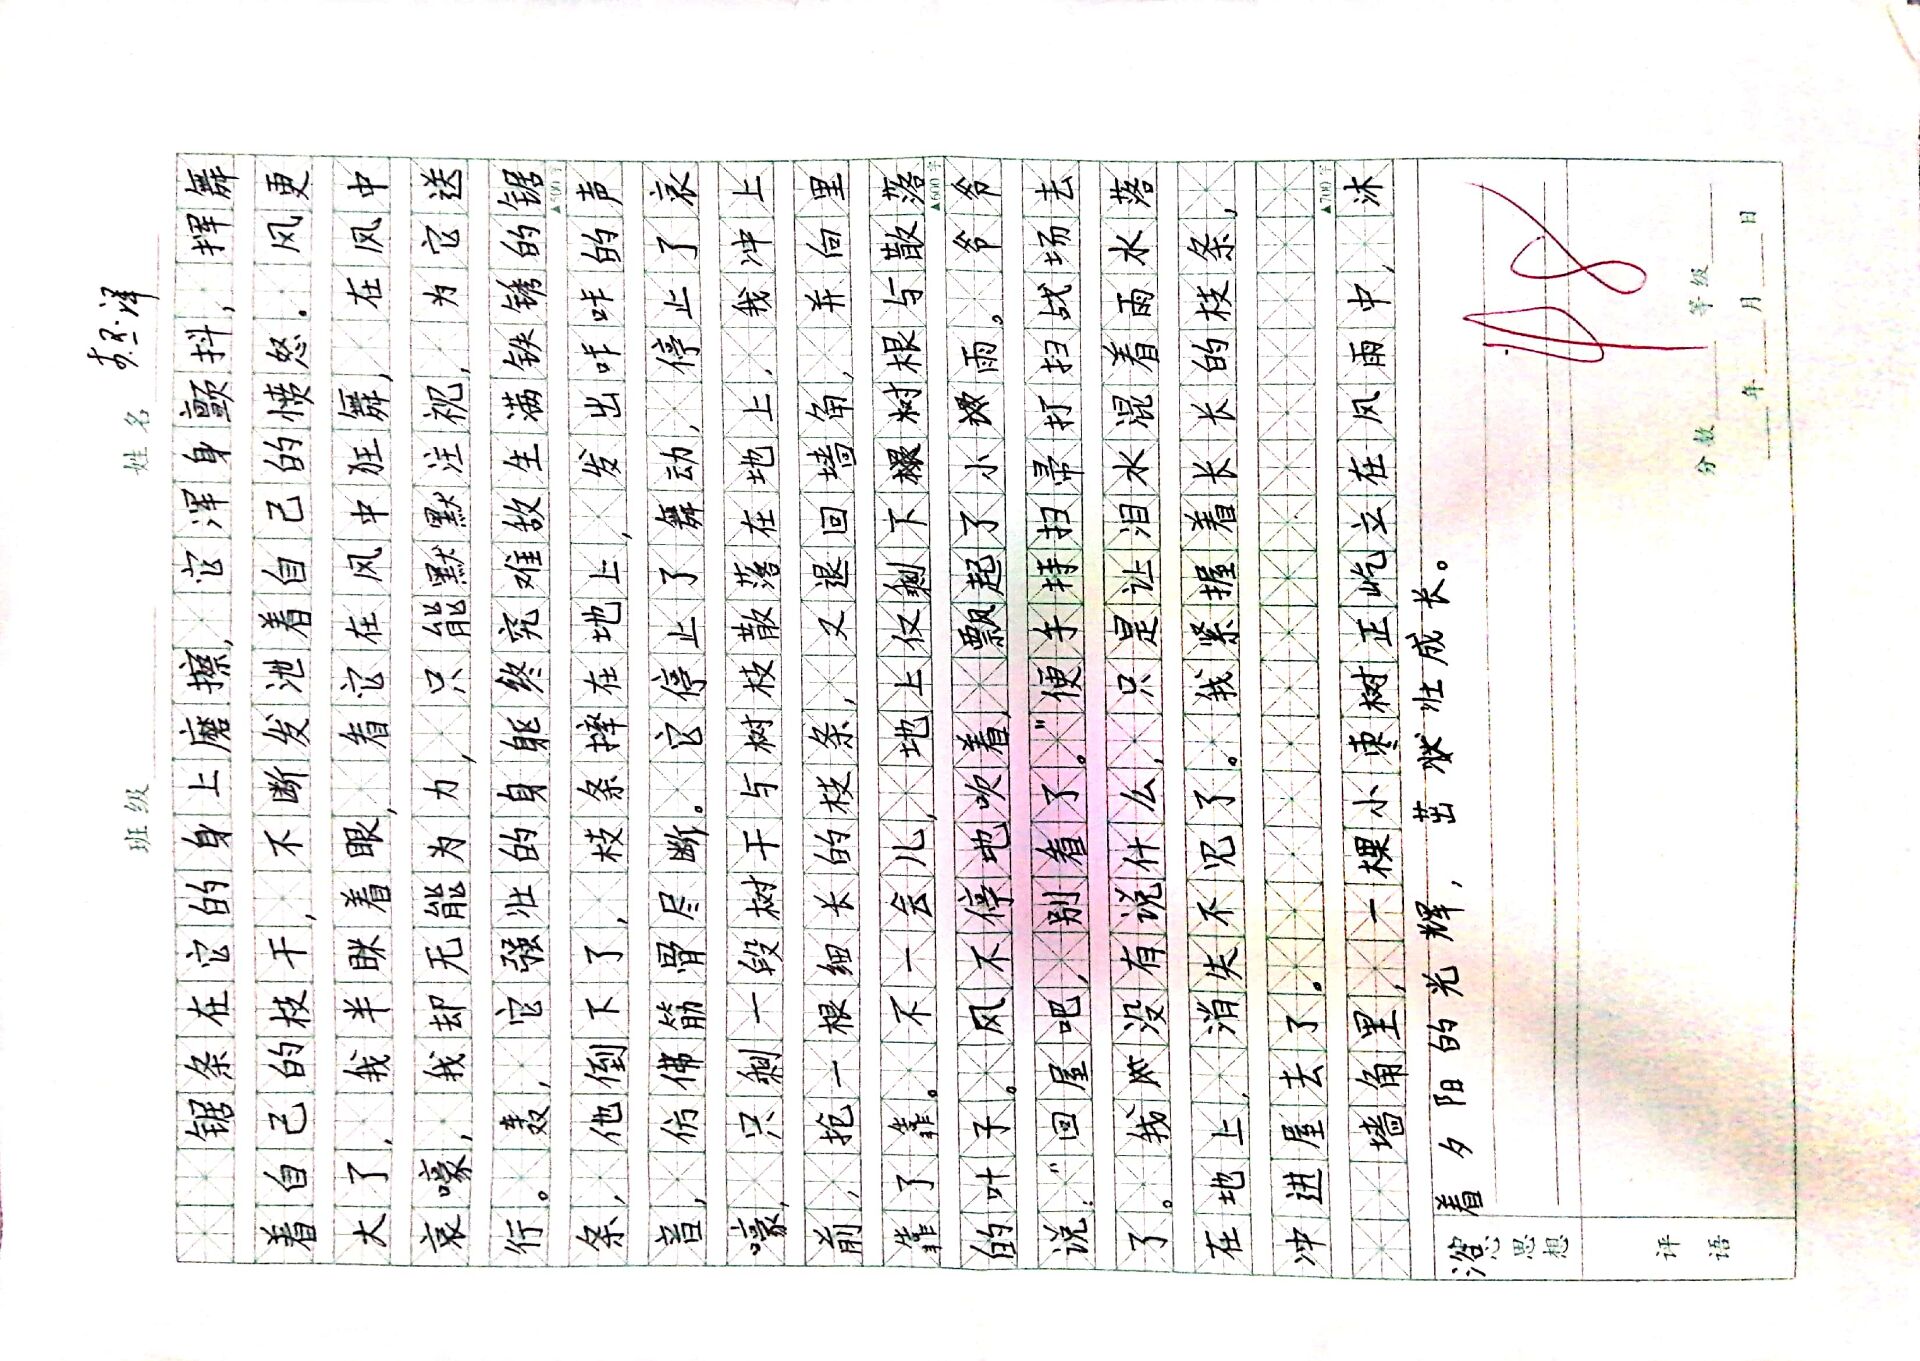 班级 姓名
锯条在它的身上磨擦,它浑身颤抖,挥舞
着自己的枝干,不断发泄着自己的愤怒.风更
大了,我半眯着眼,看它在风中狂舞,在风中
哀嚎,我却无能为力,只能默默注视,为它送
行。轰,它强壮的身躯终究难敌生满铁锈的锯
▲500字
条,他倒下了,枝条摔在地上,发出咔咔的声
音,仿佛筋骨尽断。它停止了舞动,停止了哀
嚎,只剩一段树干与树枝散落在地上.我冲上
前,抢一根细长的枝条,又退回墙角,并向里
靠了靠。不一会儿,地上仅剩下树根与散落
▲600字
的叶子。风不停地吹着,飘起了小雨。爷爷
说:"回屋吧,别看了。"便手持扫帚打扫战场去
了。我没有说什么,只是让泪水混着雨水落
在地上,消失不见了。我紧握着长长的枝条,
冲进屋去了.
▲700字
墙角里,一棵小枣树正屹立在风雨中,沐
浴着夕阳的光辉,茁壮成长。
思想
评语
分数 等级
年 月 日